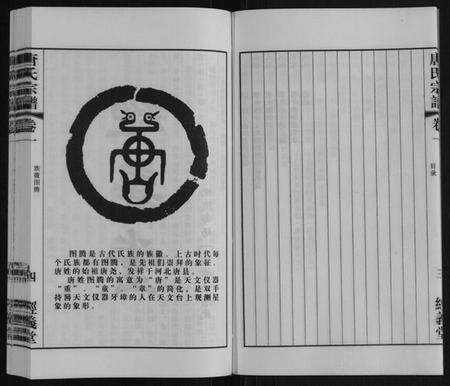 唐氏宗譜
卷一
目录
三
經義堂
唐氏宗譜
卷一
族徽图腾
四
經義堂
图腾是古代氏族的族徽。上古时代每
个氏族都有图腾，是先祖们崇拜的象征。
唐姓的始祖唐尧，发祥于河北唐县。
唐姓图腾的寓意为“唐”是天文仪器
“重”、“童”、“章”的简化，是双手
持易天文仪器牙璋的人在天文台上观测星
象的象形。